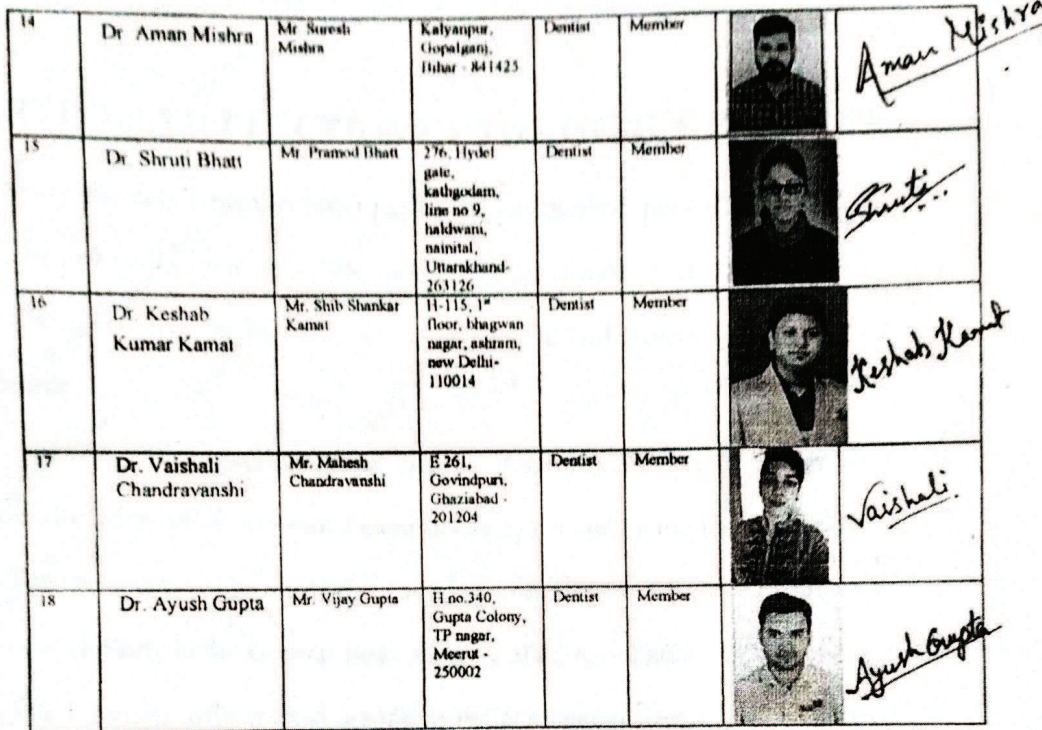 14
Dr Aman Mishra
Mr Suresh
Mishra
Kalyanpur,
Gopalganj,
Bihar - 841425
Dentist
Member
Aman Mishra
15
Dr. Shruti Bhatt
Mr. Pramod Bhatt
276, Hydel
gate,
kathgodam,
line no 9,
haldwani,
nainital,
Uttarakhand-
263126
Dentist
Member
Shruti
16
Dr. Keshab
Kumar Kamat
Mr. Shib Shankar
Kamat
H-115, 1st
floor, bhagwan
nagar, ashram,
new Delhi-
110014
Dentist
Member
Keshab Kamat
17
Dr. Vaishali
Chandravanshi
Mr. Mahesh
Chandravanshi
E 261,
Govindpuri,
Ghaziabad -
201204
Dentist
Member
Vaishali
18
Dr. Ayush Gupta
Mr. Vijay Gupta
H.no.340,
Gupta Colony,
TP nagar,
Meerut -
250002
Dentist
Member
Ayush Gupta